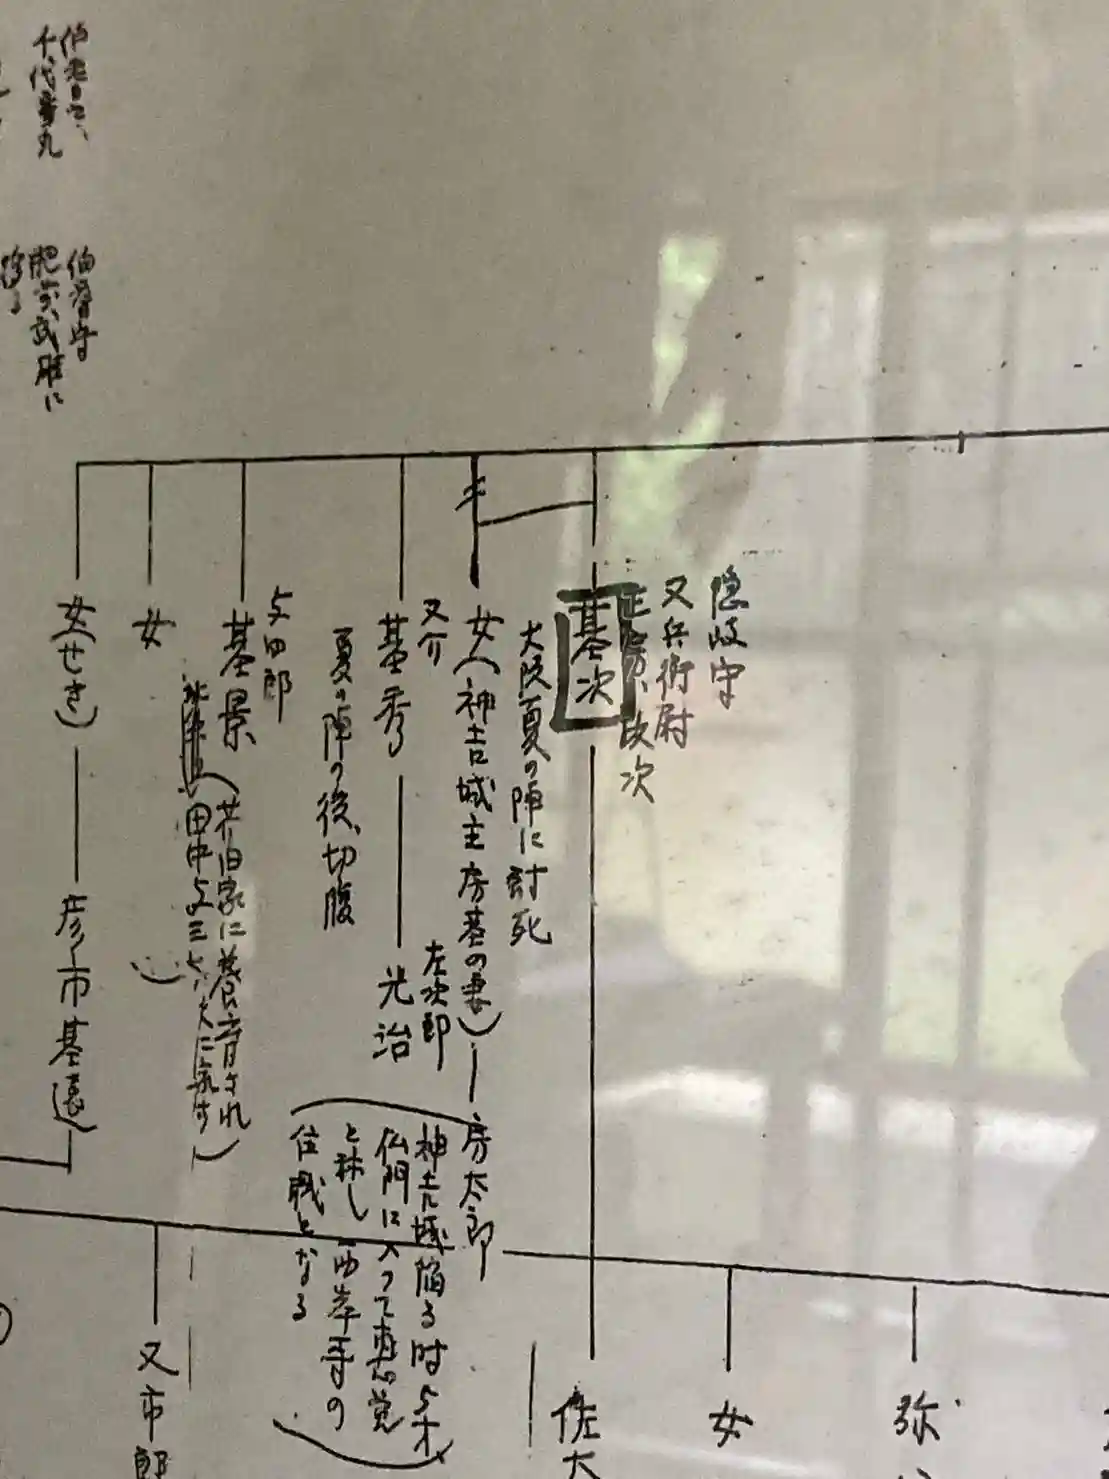 隠岐守
又兵衛尉
政次
基次
大阪夏の陣に討死
女(神吉城主房基の妻)
房太郎
神吉城陥る時5才
仏門に入って専覚
と称し西岸寺の
住職となる
又介
基秀
夏の陣の後、切腹
左次郎
光治
与四郎
基景
(芥田家に養育され
女
女(せき)
彦市基遠
伯耆守
千代寿丸
佐太
女
弥
又市郎